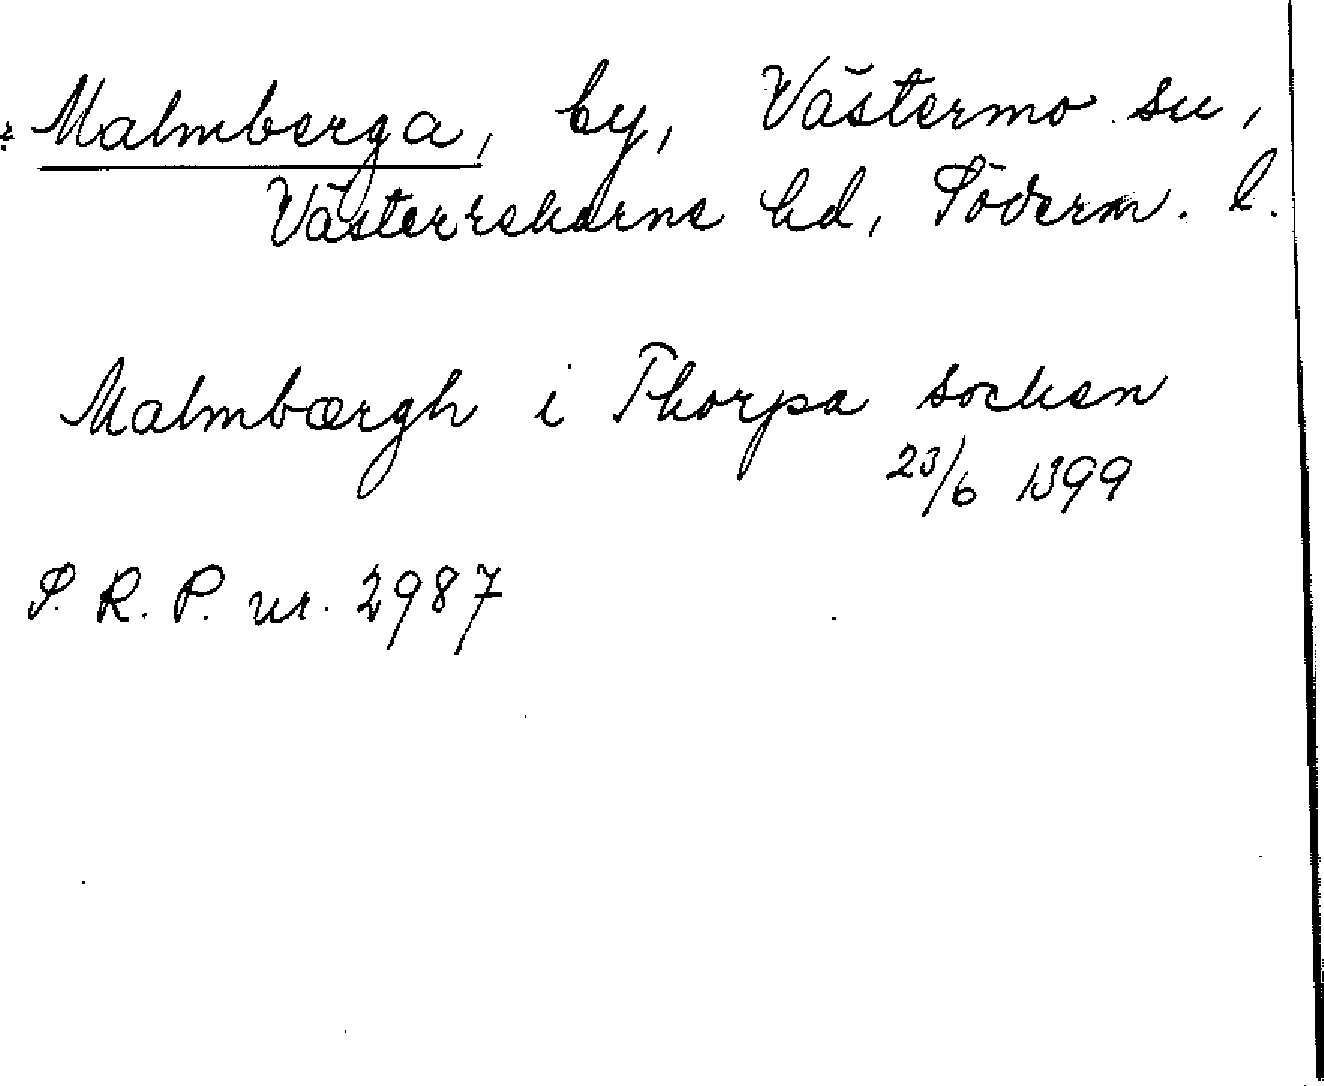 Malmberga, by, Västermo sn,
Västerrekarne hd, Söderm. l.
Malmbærgh i Thorpa socken
23/6 1399
S. R. P. nr. 2987